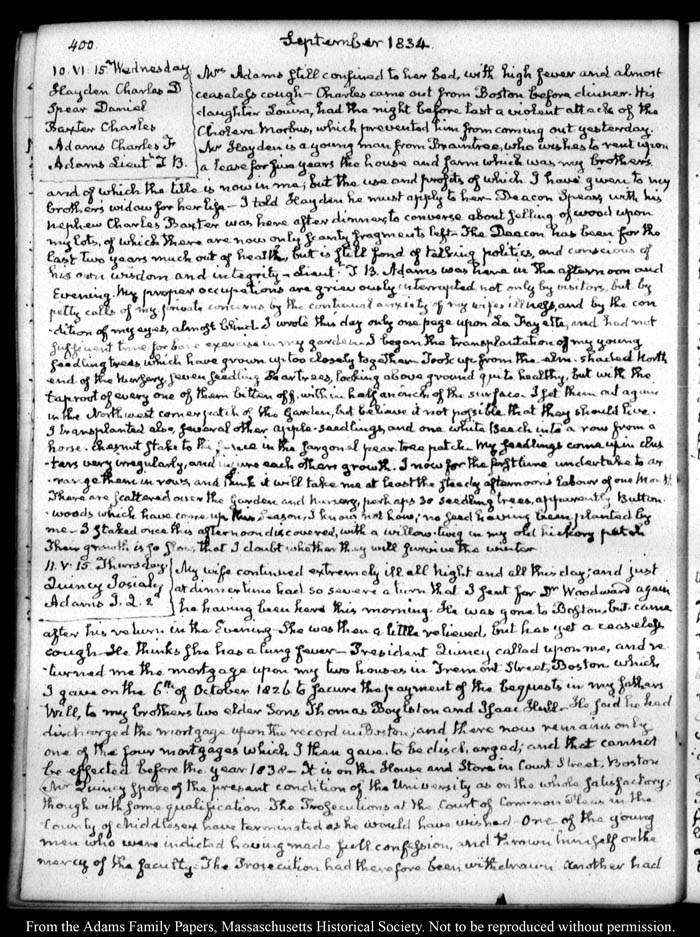 400.
September 1834.
10. VI. 15. Wednesday
Hayden Charles D
Spear Daniel
Baxter Charles
Adams Charles F.
Adams Lieut.t T. B.
Mrs Adams still confined to her bed, with high fever and almost
ceaseless cough — Charles came out from Boston before dinner. His
daughter Louisa, had the night before last a violent attack of the
Cholera Morbus, which prevented him from coming out yesterday.
Mr Hayden is a young man from Braintree, who wishes to rent upon
a lease for five years the house and farm which was my brother's
and of which the title is now in me; but the use and profits of which I have given to my
brother's widow for her life — I told Hayden he must apply to her — Deacon Spear, with his
nephew Charles Baxter was here after dinner, to converse about felling of wood upon
my lots, of which there are now only scanty fragments left — The Deacon has been for the
last two years much out of health, but is still fond of talking politics, and conscious of
his own wisdom and integrity — Lieut.t T. B. Adams was here in the afternoon and
Evening. My proper occupations are grievously interrupted, not only by visitors, but by
petty calls of my private concerns by the continual anxiety of my wife's illness, and by the con-
-dition of my eyes, almost blind. I wrote this day only one page upon La Fayette, and had not
sufficient time for bare exercise in my garden. I began the transplantation of my young
seedling trees which have grown up too closely together. Took up from the elm-shaded North
end of the Nursery, seven seedling Pear trees, looking above ground quite healthy, but with the
taproot of every one of them bitten off, within half an inch of the surface. I set them out again
in the Northwest corner patch of the Garden, but believe it not possible that they should live.
I transplanted also, several other apple-seedlings, and one white Beach into a row from a
horse-chesnut stake to the fence in the Gargonal pear tree patch. My seedlings come up in clus-
-ters very irregularly, and injure each others growth. I now for the first time undertake to ar-
-range them in rows, and think it will take me at least the steady afternoons labour of one Month
There are scattered over the Garden and Nursery, perhaps 30 seedling trees, apparently Button-
-woods which have come up this Season, I know not how; no seed having been planted by
me — I staked once this afternoon discovered, with a willow-twig in my old hickory patch
Their growth is so slow, that I doubt whether they will survive the winter
11. V. 15. Thursday
Quincy Josiah
Adams J. Q. 2
My wife continued extremely ill all Night and all this day; and just
at dinner time had so severe a turn that I sent for Dr Woodward again
he having been here this morning. He was gone to Boston, but came
after his return in the Evening — She was then a little relieved, but has yet a ceaseless
cough — He thinks she has a lung fever — President Quincy called upon me, and re-
-turned me the mortgage upon my two houses in Tremont Street, Boston which
I gave on the 6th of October 1826 to secure the payment of the bequests in my fathers
Will, to my brothers two elder Sons Thomas Boylston and Isaac Hull — He said he had
discharged the mortgage upon the record in Boston; and there now remains only
one of the four mortgages which I then gave, to be discharged; and that cannot
be effected before the year 1838 — It is on the House and Store in Court Street, Boston
Mr Quincy spoke of the present condition of the University as on the whole satisfactory;
though with some qualification. The Prosecutions at the Court of Common Pleas in the
County of Middlesex have terminated as he would have wished — One of the young
men who were indicted having made full confession, and thrown himself on the
mercy of the faculty. The Prosecution had therefore been withdrawn. Another had
From the Adams Family Papers, Massachusetts Historical Society. Not to be reproduced without permission.